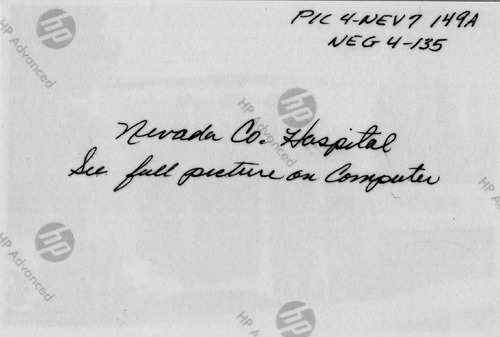 PIC 4-NEV7 149A
NEG 4-135
hp
HP Advanced
hp
HP Advanced
Nevada Co. Hospital
See full picture on Computer
hp
HP Advanced
hp
HP A